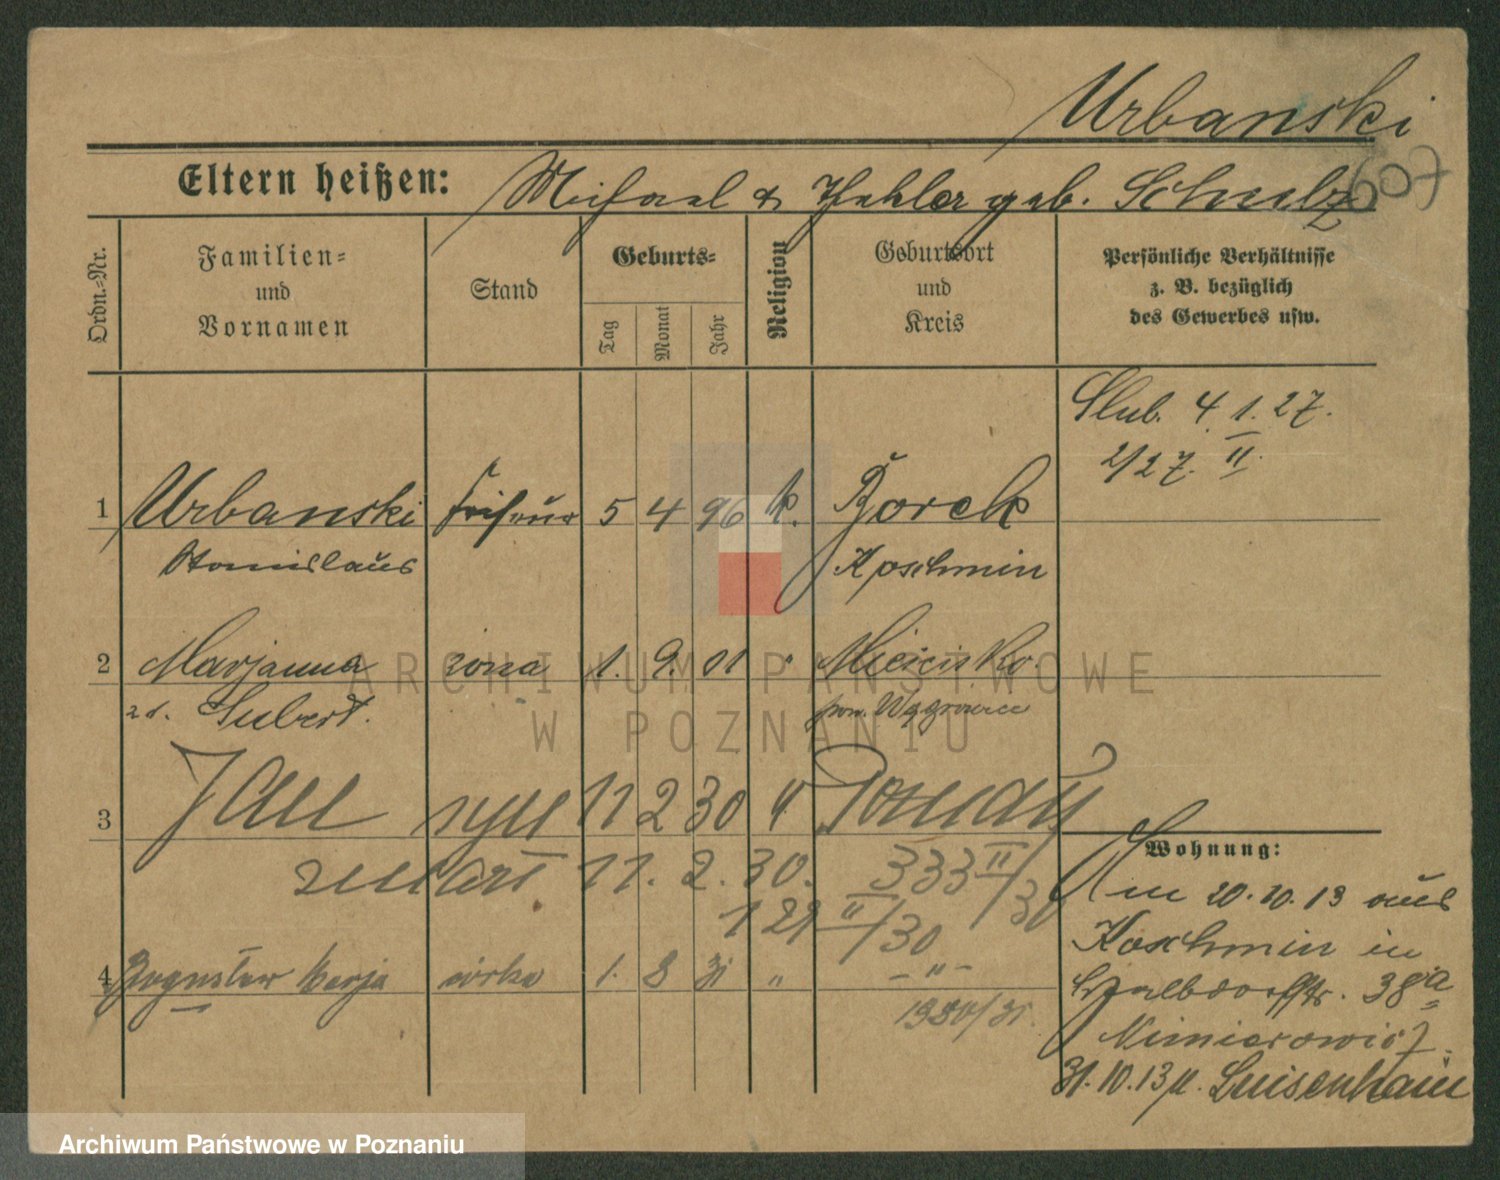 Urbanski
607
Eltern heißen: Michael & Thekla geb. Schulz
Ordn.-Nr.
Familien-
und
Vornamen
Stand
Geburts-
Tag
Monat
Jahr
Religion
Geburtsort
und
Kreis
Persönliche Verhältnisse
z. B. bezüglich
des Gewerbes usw.
Slub. 4.1.27.
2/27. II.
1 Urbanski Friseur 5 4 96 k. Borek
Stanislaus Koschmin
2 Marjanna żona 1. 9. 01 " Mieścisko
zd. Subert. pow. Wągrówiec
3 Jan syn 11 2 30 " Poznań
zmarł 11. 2. 30. 333 II/30
129 II/30
4 Marja córka 1. 8 31 " - " -
1980/31.
Wohnung:
Am 20.10.13 aus
Koschmin in
38a
31.10.13 n. Luisenhain
ARCHIWUM PAŃSTWOWE
W POZNANIU
Archiwum Państwowe w Poznaniu